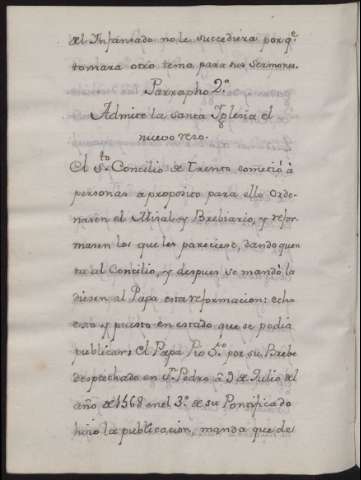 del Infantado no le succediera por q.e
tomara otro tema para sus Sermones.
Parrapho 2.o
Admite la Santa Yglesia el
nuevo rezo.
El S.to Concilio de Trento cometiò à
personas a proposito para ello orde-
nasen el Missal, y Brebiario, y refor-
masen los que les pareciese, dando quen
ta al Concilio, y despues se mandó la
diesen al Papa esta reformacion: echo
esto y puesto en estado que se podia
publicar; El Papa Pio 5.o por su Brebe
despachado en S.n Pedro â 9 de Julio del
año de 1568 en el 3.o de su Pontificado
hizo la publicacion, manda que de